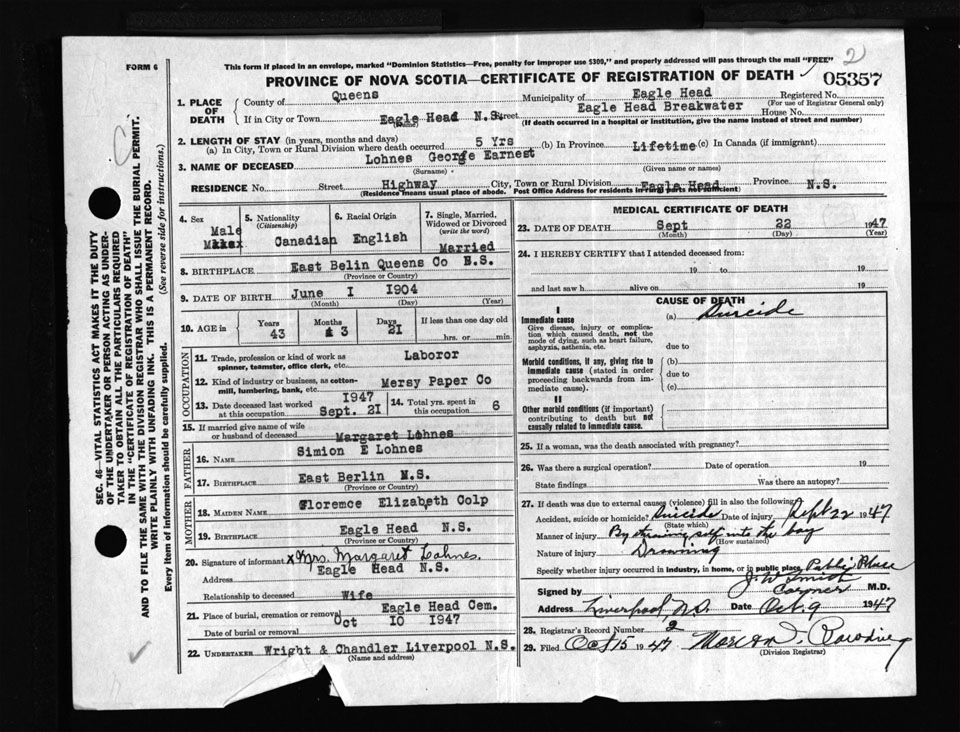 2
FORM 6
This form if placed in an envelope, marked "Dominion Statistics—Free, penalty for improper use $300," and properly addressed will pass through the mail "FREE"
PROVINCE OF NOVA SCOTIA—CERTIFICATE OF REGISTRATION OF DEATH
05357
1. PLACE OF DEATH
County of Queens
Municipality of Eagle Head
Registered No.
(For use of Registrar General only)
If in City or Town Eagle Head N.S. Street Eagle Head Breakwater House No.
(Name)
(If death occurred in a hospital or institution, give the name instead of street and number)
2. LENGTH OF STAY (in years, months and days)
(a) In City, Town or Rural Division where death occurred 5 Yrs (b) In Province Lifetime (c) In Canada (if immigrant)
3. NAME OF DECEASED Lohnes George Earnest
(Surname) (Given name or names)
RESIDENCE No. Street Highway City, Town or Rural Division Eagle Head Province N.S.
(Residence means usual place of abode. Post Office Address for residents in rural parts not sufficient)
4. Sex
Male
5. Nationality
(Citizenship)
Canadian
6. Racial Origin
English
7. Single, Married, Widowed or Divorced
(write the word)
Married
8. BIRTHPLACE East Belin Queens Co N.S.
(Province or Country)
9. DATE OF BIRTH June I 1904
(Month) (Day) (Year)
10. AGE in
Years Months Days If less than one day old
43 3 21 hrs. or min.
OCCUPATION
11. Trade, profession or kind of work as spinner, teamster, office clerk, etc. Laboror
12. Kind of industry or business, as cotton-mill, lumbering, bank, etc. Mersy Paper Co
13. Date deceased last worked at this occupation Sept. 21 1947
14. Total yrs. spent in this occupation 6
15. If married give name of wife or husband of deceased Margaret Lohnes
FATHER
16. NAME Simion E Lohnes
17. BIRTHPLACE East Berlin N.S.
(Province or Country)
MOTHER
18. MAIDEN NAME Florence Elizabeth Colp
19. BIRTHPLACE Eagle Head N.S.
(Province or Country)
20. Signature of informant x Mrs. Margaret Lohnes.
Address Eagle Head N.S.
Relationship to deceased Wife
21. Place of burial, cremation or removal Eagle Head Cem.
Date of burial or removal Oct 10 1947
22. UNDERTAKER Wright & Chandler Liverpool N.S.
(Name and address)
MEDICAL CERTIFICATE OF DEATH
23. DATE OF DEATH Sept 22 1947
(Month) (Day) (Year)
24. I HEREBY CERTIFY that I attended deceased from:
19 to 19
and last saw h alive on 19
CAUSE OF DEATH
I
Immediate cause
Give disease, injury or complication which caused death, not the mode of dying, such as heart failure, asphyxia, asthenia, etc.
(a) Suicide
due to
Morbid conditions, if any, giving rise to immediate cause (stated in order proceeding backwards from immediate cause).
(b)
due to
(c)
II
Other morbid conditions (if important) contributing to death but not causally related to immediate cause.
25. If a woman, was the death associated with pregnancy?
26. Was there a surgical operation? Date of operation 19
State findings Was there an autopsy?
27. If death was due to external causes (violence) fill in also the following:
Accident, suicide or homicide? Suicide Date of injury Sept 22 1947
(State which)
Manner of injury By self into the bay
(How sustained)
Nature of injury Drowning
Specify whether injury occurred in industry, in home, or in public place Public Place
Signed by M.D.
Coroner
Address Liverpool N.S. Date Oct. 9 1947
28. Registrar's Record Number 2
29. Filed Oct 15 1947
(Division Registrar)
SEC. 46—VITAL STATISTICS ACT MAKES IT THE DUTY
OF THE UNDERTAKER OR PERSON ACTING AS UNDER-
TAKER TO OBTAIN ALL THE PARTICULARS REQUIRED
IN THE "CERTIFICATE OF REGISTRATION OF DEATH"
AND TO FILE THE SAME WITH THE DIVISION REGISTRAR WHO SHALL ISSUE THE BURIAL PERMIT.
WRITE PLAINLY WITH UNFADING INK. THIS IS A PERMANENT RECORD.
Every item of information should be carefully supplied. (See reverse side for instructions.)